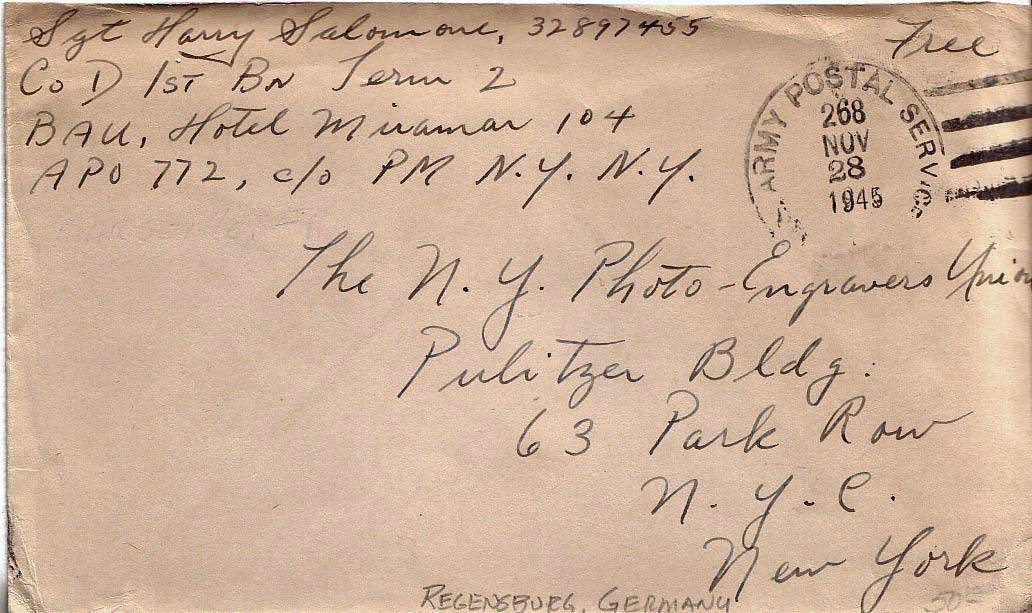 Sgt Harry Salomone, 32897455
Free
Co D 1st Bn Term 2
BAU, Hotel Miramar 104
APO 772, c/o PM N.Y. N.Y.
ARMY POSTAL SERVICE
268
NOV
28
1945
The N. Y. Photo-Engravers Union
Pulitzer Bldg.
63 Park Row
N. Y. C.
New York
REGENSBURG, GERMANY